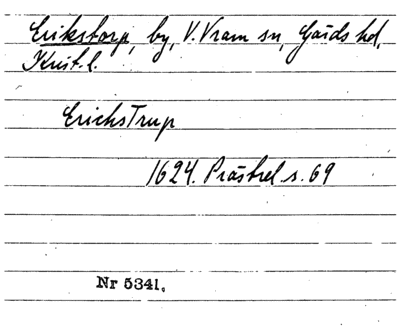 Erikstorp, by, V. Vram sn, Gärds hd,
Krist. l.
ErichsTrup
1624. Prästrel. s. 69
Nr 5341.